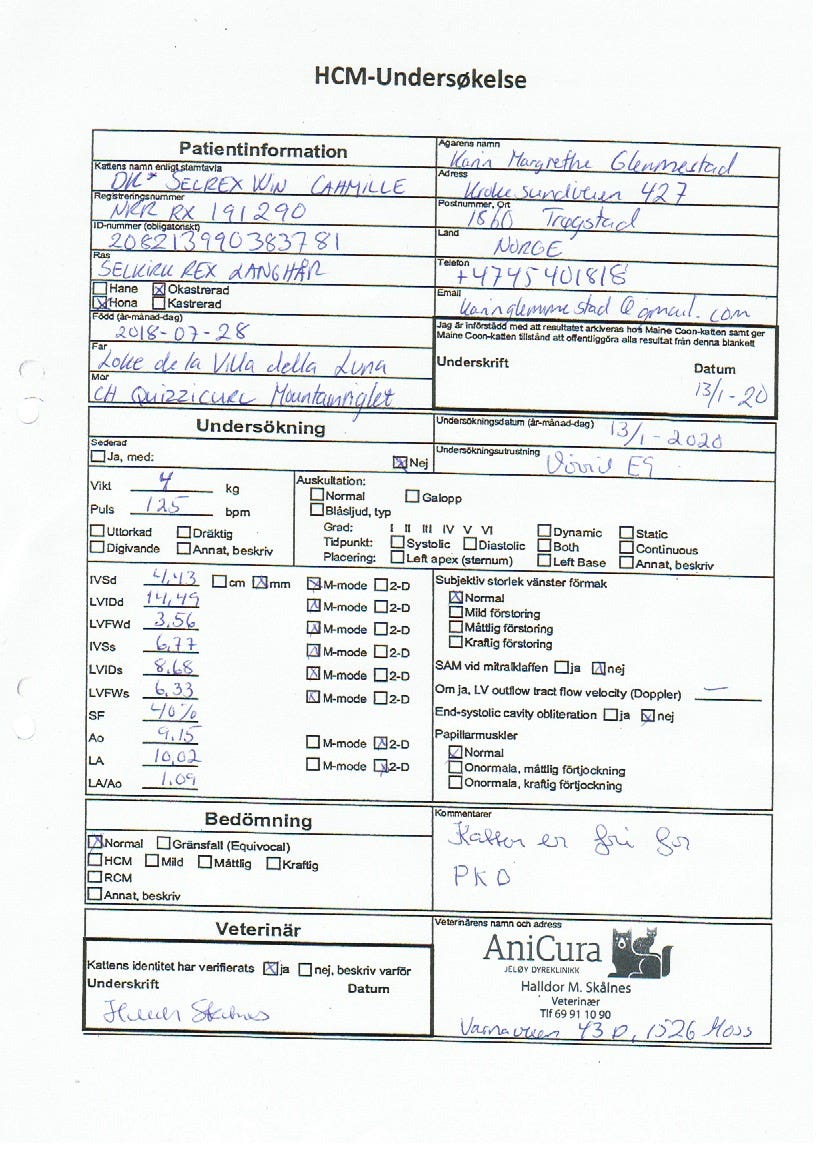 HCM-Undersøkelse
Patientinformation
Kattens namn enligt stamtavla
DK* SELREX WIN CAHMILLE
Registreringsnummer
NRR RX 191290
ID-nummer (obligatoriskt)
208213990383781
Ras
SELKIRK REX LANGHÅR
Hane Okastrerad
Hona Kastrerad
Född (år-månad-dag)
2018-07-28
Far
Loke de la Villa della Luna
Mor
CH Quizzicurl Mountainriglet
Ägarens namn
Karin Margrethe Glemmestad
Adress
Krokesundveien 427
Postnummer, Ort
1860 Trøgstad
Land
NORGE
Telefon
+4745401818
Email
karinglemmestad@gmail.com
Jag är införstådd med att resultatet arkiveras hos Maine Coon-katten samt ger
Maine Coon-katten tillstånd att offentliggöra alla resultat från denna blankett
Underskrift Datum
13/1-20
Undersökning
Sederad
Ja, med: Nej
Undersökningsdatum (år-månad-dag) 13/1-2020
Undersökningsutrustning
Vivid E9
Vikt 4 kg
Puls 125 bpm
Uttorkad Dräktig
Digivande Annat, beskriv
Auskultation:
Normal Galopp
Blåsljud, typ
Grad: I II III IV V VI Dynamic Static
Tidpunkt: Systolic Diastolic Both Continuous
Placering: Left apex (sternum) Left Base Annat, beskriv
IVSd 4,43 cm mm M-mode 2-D
LVIDd 14,49 M-mode 2-D
LVFWd 3,56 M-mode 2-D
IVSs 6,77 M-mode 2-D
LVIDs 8,68 M-mode 2-D
LVFWs 6,33 M-mode 2-D
SF 40%
Ao 9,15 M-mode 2-D
LA 10,02 M-mode 2-D
LA/Ao 1,09
Subjektiv storlek vänster förmak
Normal
Mild förstoring
Måttlig förstoring
Kraftig förstoring
SAM vid mitralklaffen ja nej
Om ja, LV outflow tract flow velocity (Doppler) —
End-systolic cavity obliteration ja nej
Papillarmuskler
Normal
Onormala, måttlig förtjockning
Onormala, kraftig förtjockning
Bedömning
Normal Gränsfall (Equivocal)
HCM Mild Måttlig Kraftig
RCM
Annat, beskriv
Kommentarer
Katten er fri for
PKD
Veterinär
Kattens identitet har verifierats ja nej, beskriv varför
Underskrift Datum
Veterinärens namn och adress
AniCura
JELØY DYREKLINIKK
Halldor M. Skålnes
Veterinær
Tlf 69 91 10 90
Varnaveien 43 D, 1526 Moss